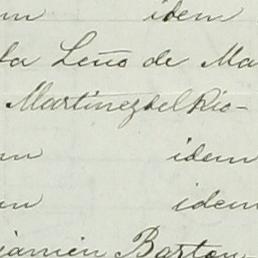 idem
Leño de Ma
Martinez del Rio-
idem
idem
jamin Barton